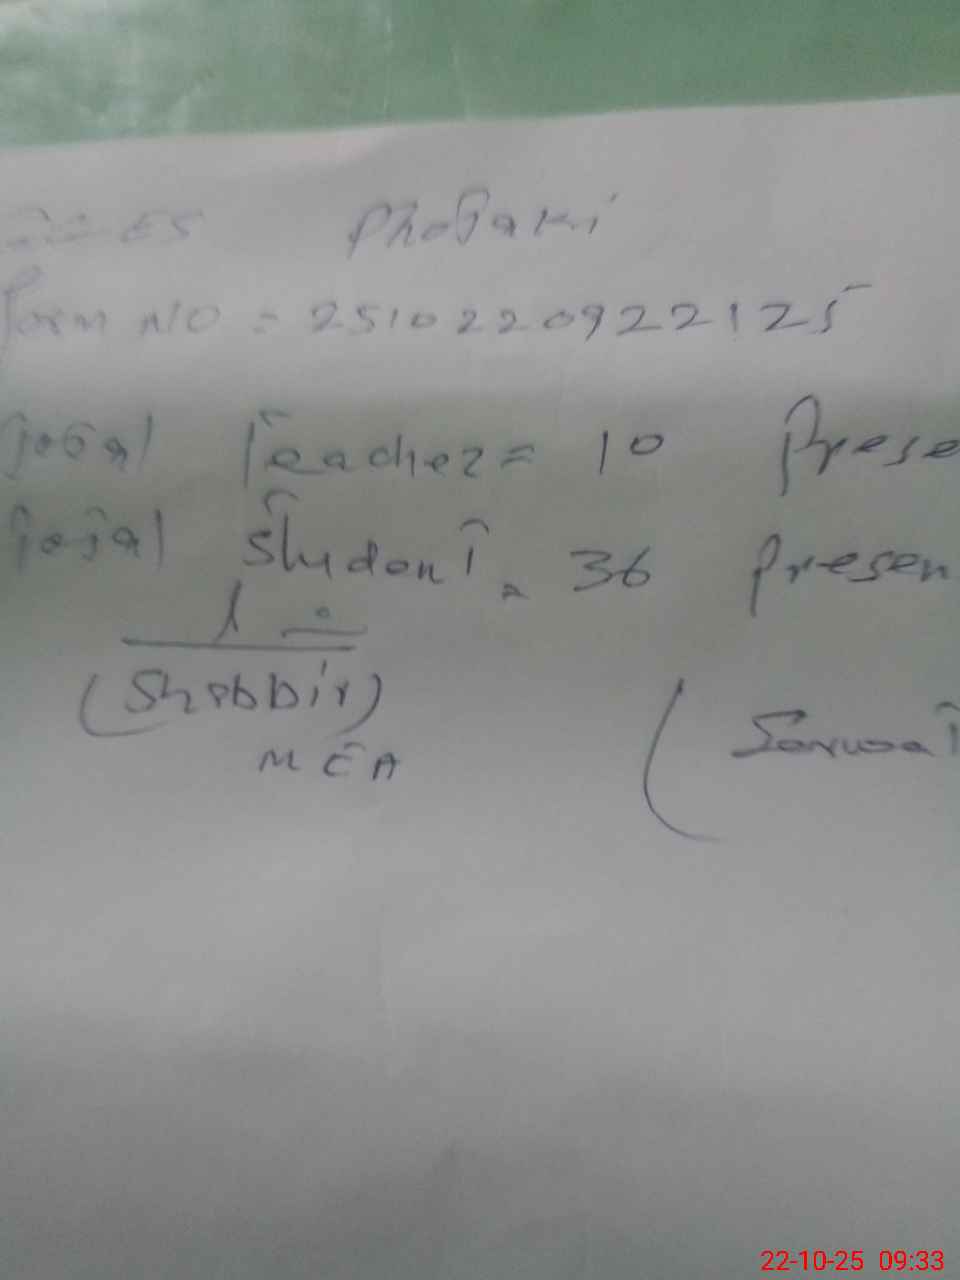 ES Photaki
Form NO = 2510220922125
Total Teacher = 10 Prese
Total Student = 36 Presen
(Shabbir)
MEA
(Sarwat
22-10-25 09:33